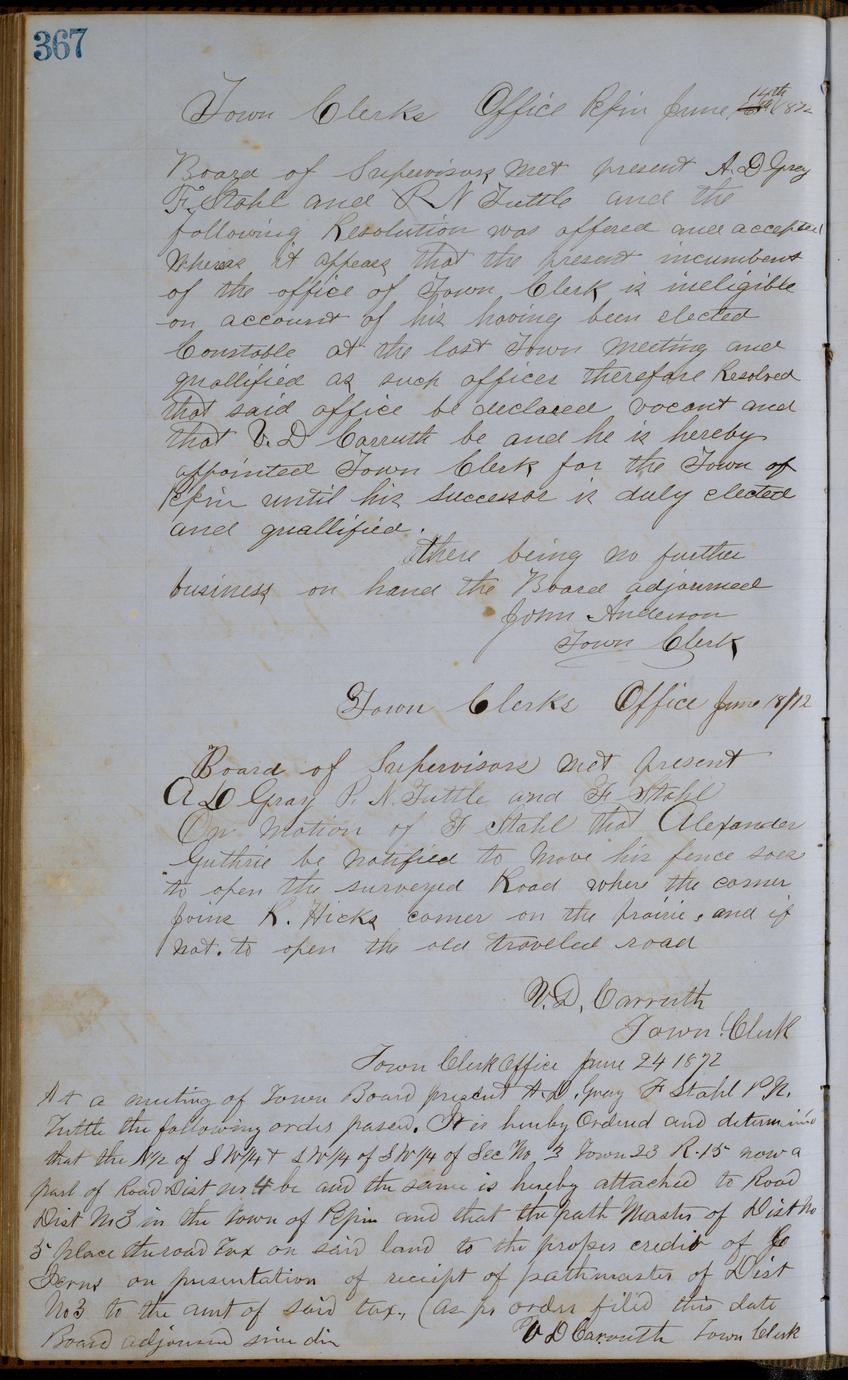 367
Town Clerks Office Pepin June 14th 1872
Board of Supervisors Met present A. D Gray
F. Stahl and P. N Tuttle and the
following Resolution was offered and accepted
Wheras it appears that the present incumbent
of the office of Town Clerk is ineligible
on account of his having been elected
Constable at the last Town Meeting and
quallified as such officer therefore Resolved
that said office be declared vacant and
that V. D Carruth be and he is hereby
appointed Town Clerk for the Town of
Pepin until his Successor is duly elected
and quallified.
there being no further
business on hand the Board adjourned
John Anderson
Town Clerk
Town Clerks Office June 18/72
Board of Supervisors Met present
A D Gray P. N. Tuttle and F Stahl
On Motion of F Stahl that Alexander
Guthrie be notified to Move his fence soes
to open the surveyed Road where the corner
joins R. Hicks corner on the prairie, and if
not. to open the old traveled road
V. D, Carruth
Town Clerk
Town Clerk Office June 24 1872
At a meeting of Town Board present A. D. Gray F Stahl P. N.
Tuttle the following order passed. It is hereby Ordered and determined
that the N/2 of S W/4 & S W/4 of S W/4 of Sec No 3 Town 23 R. 15 now a
part of Road Dist No 4 be and the same is hereby attached to Road
Dist No 3 in the Town of Pepin and that the path Master of Dist No
5 place the road Tax on said land to the proper credit of
on presentation of receipt of pathmaster of Dist
No 3 to the amt of said tax, (as pr order filed this date
Board adjourned sine die V D Carruth Town Clerk